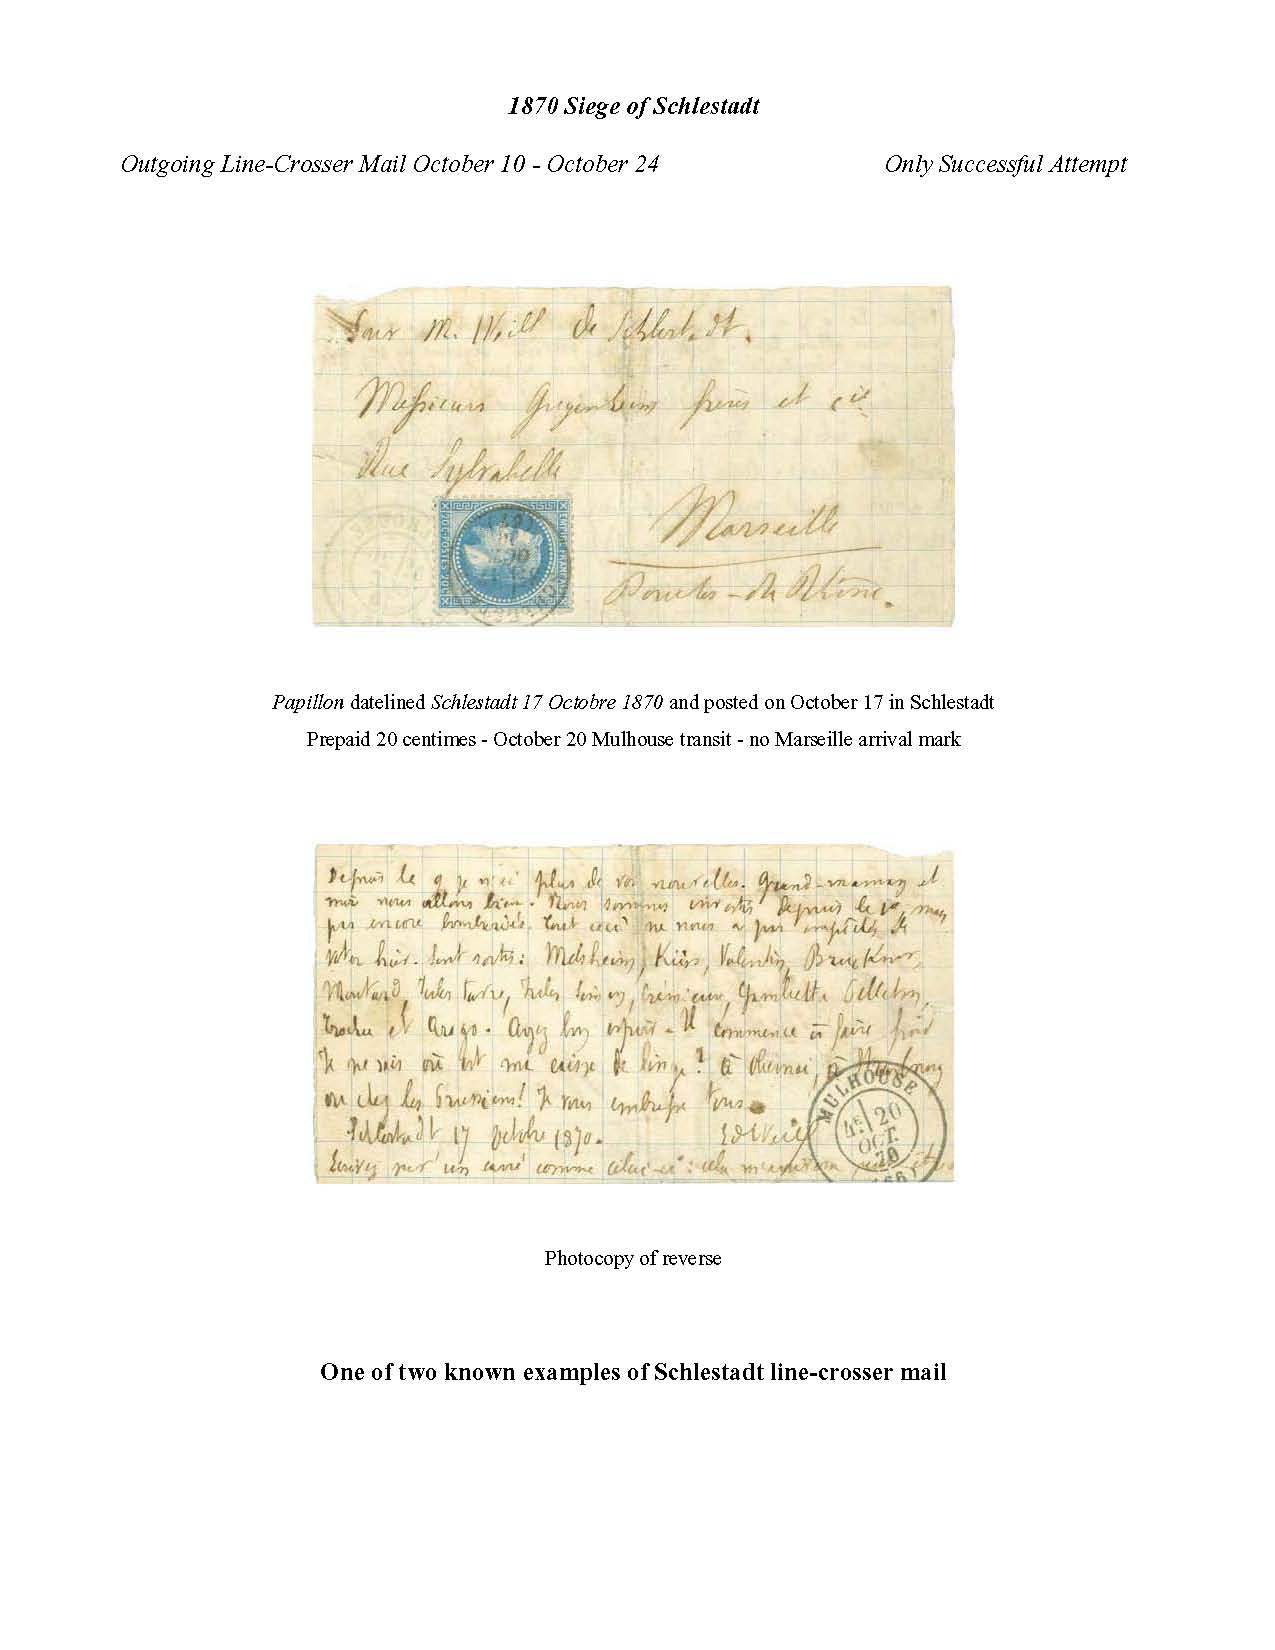 1870 Siege of Schlestadt
Outgoing Line-Crosser Mail October 10 - October 24 Only Successful Attempt
M. Weill de Schlestadt.
Messieurs frères et Cie
Rue Sylvabelle
Marseille
Bouches-du-Rhône.
EMPIRE FRANÇAIS
20C POSTES 20C
Papillon datelined Schlestadt 17 Octobre 1870 and posted on October 17 in Schlestadt
Prepaid 20 centimes - October 20 Mulhouse transit - no Marseille arrival mark
Depuis le 9 je n'ai plus de vos nouvelles. Grand-maman et
moi nous allons bien. Nous sommes investis depuis le mais
pas encore bombardés. Tout ceci ne nous a pas empêchés de
voter hier. Sont sortis: Melsheim, Küss, Valentin, Bruckner,
Jules Favre, Jules Simon, Crémieux, Gambetta Pelletan,
Trochu et Arago. Ayez bon espoir - Il commence à faire froid
Je ne sais où est ma caisse de linge? à à Strasbourg
ou chez les Prussiens! Je vous embrasse tous.
Schlestadt, 17 Octobre 1870. Ed Weill
Ecrivez sur un carré comme celui-ci: cela
MULHOUSE
4E 20
OCT.
70
Photocopy of reverse
One of two known examples of Schlestadt line-crosser mail